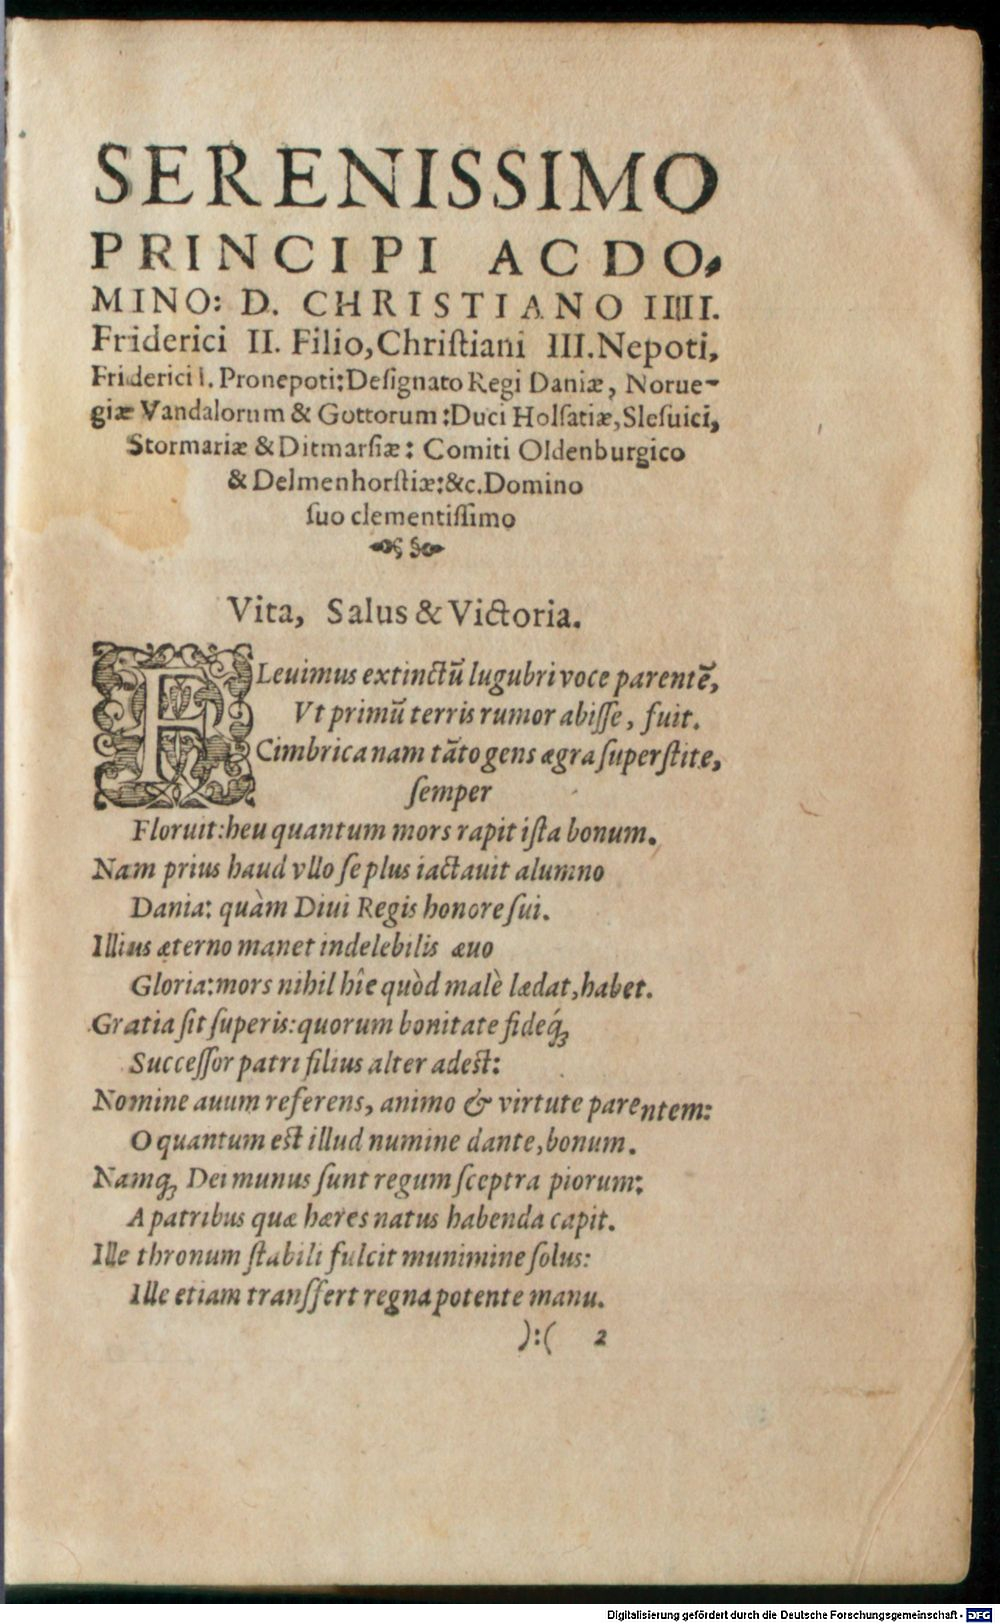 SERENISSIMO
PRINCIPI AC DO,
MINO: D. CHRISTIANO IIIII.
Friderici II. Filio, Chriſtiani III. Nepoti,
Friderici I. Pronepoti: Deſignato Regi Daniæ, Norue-
giæ Vandalorum & Gottorum: Duci Holſatiæ, Sleſuici,
Stormariæ & Ditmarſiæ: Comiti Oldenburgico
& Delmenhorſtiæ: &c. Domino
ſuo clementiſſimo
Vita, Salus & Victoria.
FLeuimus extinctū lugubri voce parentē,
Vt primū terris rumor abiſſe, fuit.
Cimbrica nam tāto gens ægra ſuperſtite,
ſemper
Floruit: heu quantum mors rapit iſta bonum.
Nam prius haud vllo ſe plus iactauit alumno
Dania: quàm Diui Regis honore ſui.
Illius æterno manet indelebilis æuo
Gloria: mors nihil hîc quòd malè lædat, habet.
Gratia ſit ſuperis: quorum bonitate fideq́ꝫ
Succeſſor patri filius alter adeſt:
Nomine auum referens, animo & virtute parentem:
O quantum eſt illud numine dante, bonum.
Namqꝫ Dei munus ſunt regum ſceptra piorum:
A patribus quæ hæres natus habenda capit.
Ille thronum ſtabili fulcit munimine ſolus:
Ille etiam transfert regna potente manu.
):( 2
Digitalisierung gefördert durch die Deutsche Forschungsgemeinschaft - DFG